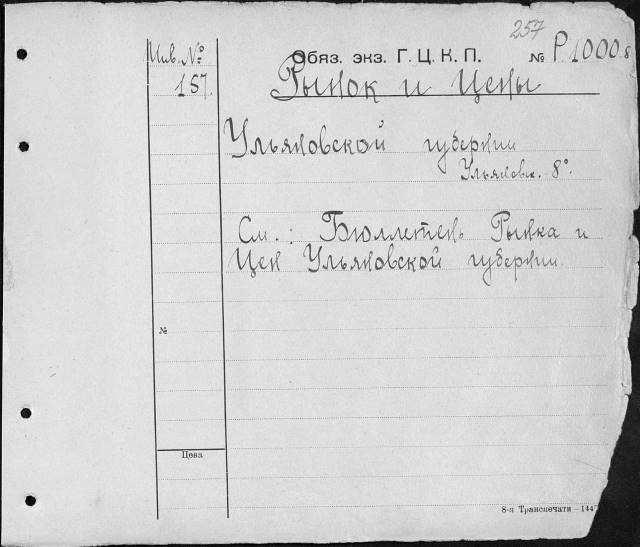 257
Инв. №
Обяз. экз. Г. Ц. К. П. № Р.1000
157.
Рынок и Цены
Ульяновской губернии
Ульяновск. 8°.
См.: Бюллетень Рынка и
Цен Ульяновской губернии.
№
Цена
8-я Транспечати — 1447